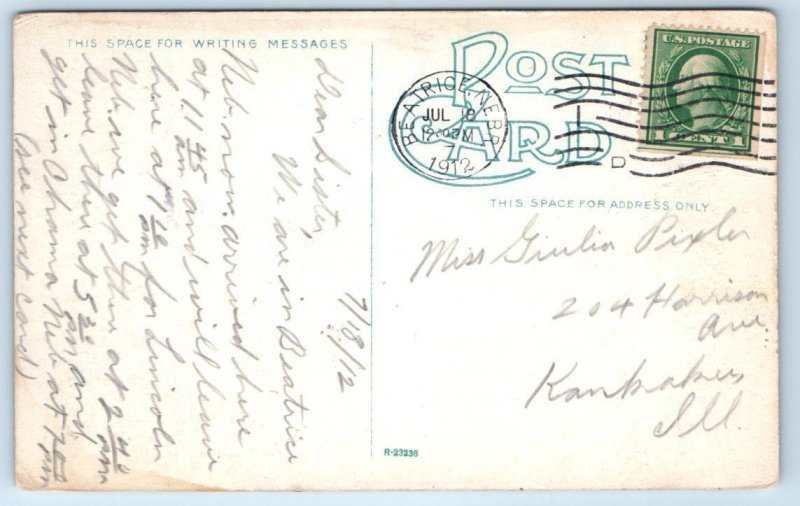 THIS SPACE FOR WRITING MESSAGES
POST CARD
BEATRICE, NEBR.
JUL 18
12-30 M
7
1912
D
U.S. POSTAGE
1 CENT 1
THIS SPACE FOR ADDRESS ONLY
Miss Giulia Pixler
204 Harrison
Ave
Kankakee,
Ill.
R-23238
7/18/12
Dear Sister,
We are in Beatrice
Neb. now. arrived here
at 11 45 am and will leave
here at 1 10 am for Lincoln
Neb we get there at 2 40 am
leave there at 5 20 am and
get in Omaha Neb at 7 00 am
(see next card)